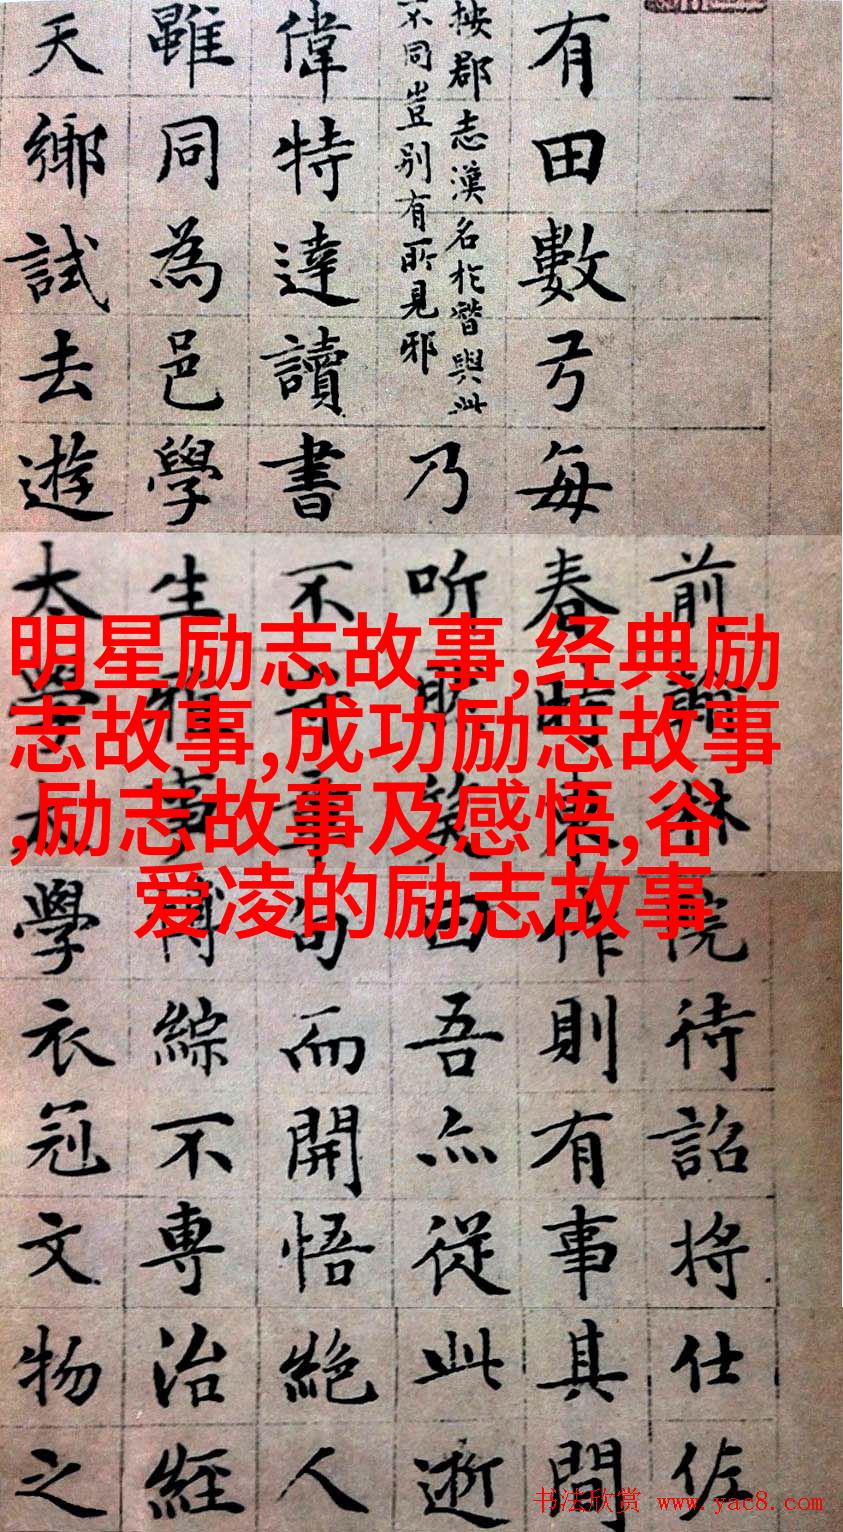 前林院待詔將仕佐
有田數弓每春時東作則有事其間
按郡志漢名於與此
不同豈別有所見邪
乃听笑曰吾亦從此逝
偉特達讀書不守章句而開悟絕人
雖同為邑學生雅博綜不専治經
天鄉試去遊太學太學衣冠文物之
明星励志故事,经典励
志故事,成功励志故事
,励志故事及感悟,谷
爱凌的励志故事
书法欣赏 www.yac8.com